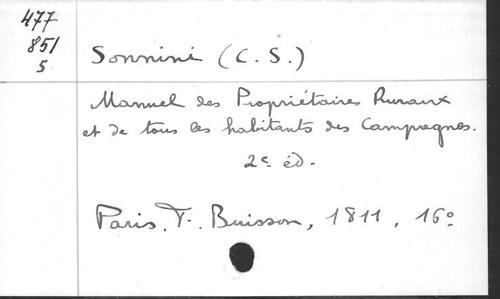 477
851
5
Sonnini (C. S.)
Manuel des Propriétaires Ruraux
et de tous les habitants des Campagnes.
2e éd.
Paris, F. Buisson, 1811, 16°